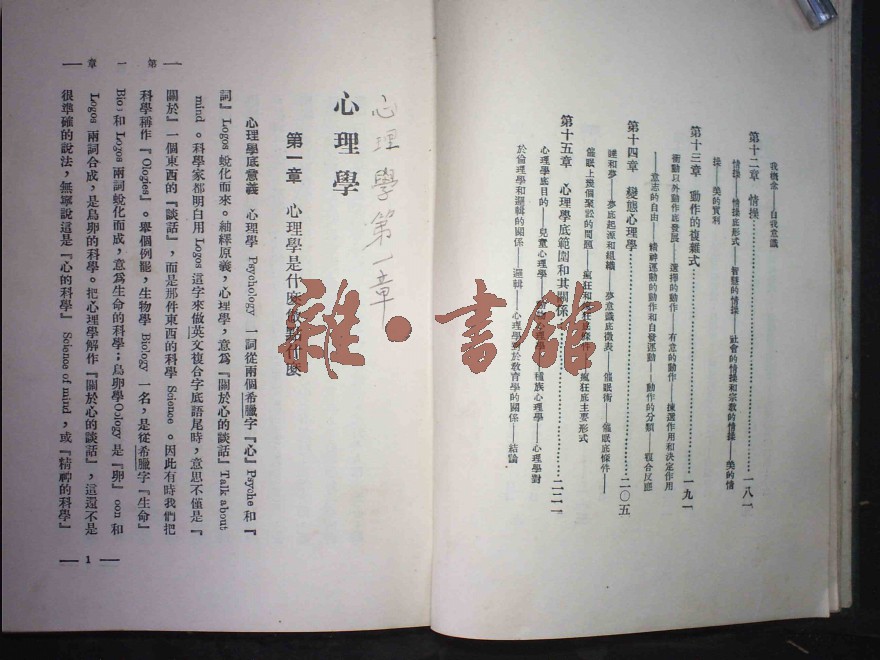 我概念——自我意識
第十二章 情操……一八一
情操——情操底形式——智慧的情操——社會的情操和宗教的情操——美的情
操——美的實利
第十三章 動作的複雜式……一九一
衝動以外動作底發展——選擇的動作——有意的動作——揀選作用和決定作用
——意志的自由——精神運動的動作和自發運動——動作的分類——複合反應
第十四章 變態心理學……二〇五
睡和夢——夢底起源和組織——夢意識底徵表——催眠術——催眠底條件——
催眠上幾個聚訟的問題——瘋狂和瘋狂底條件——瘋狂底主要形式
第十五章 心理學底範圍和其關係……二二一
心理學底目的——兒童心理學——心理學——種族心理學——心理學對
於倫理學和邏輯的關係——邏輯——心理學對於教育學的關係——結論
雜·書館
心理學第一章
心理學
第一章 心理學是什麼做點什麼
心理學底意義 心理學 Psychology 一詞從兩個希臘字『心』Psyche 和『
詞』Logos 蛻化而來。紬繹原義，心理學，意爲『關於心的談話』Talk about
mind。科學家都明白用 Logos 這字來做英文複合字底語尾時，意思不僅是『
關於』一個東西的『談話』，而是那件東西的科學 Science。因此有時我們把
科學稱作『Ologies』。舉個例罷，生物學 Biology 一名，是從希臘字『生命』
Bios 和 Logos 兩詞蛻化而成，意爲生命的科學；鳥卵學 Oology 是『卵』oon 和
Logos 兩詞合成，是鳥卵的科學。把心理學解作『關於心的談話』，這還不是
很準確的說法，無寧說這是『心的科學』Science of mind，或『精神的科學』
第一章
1